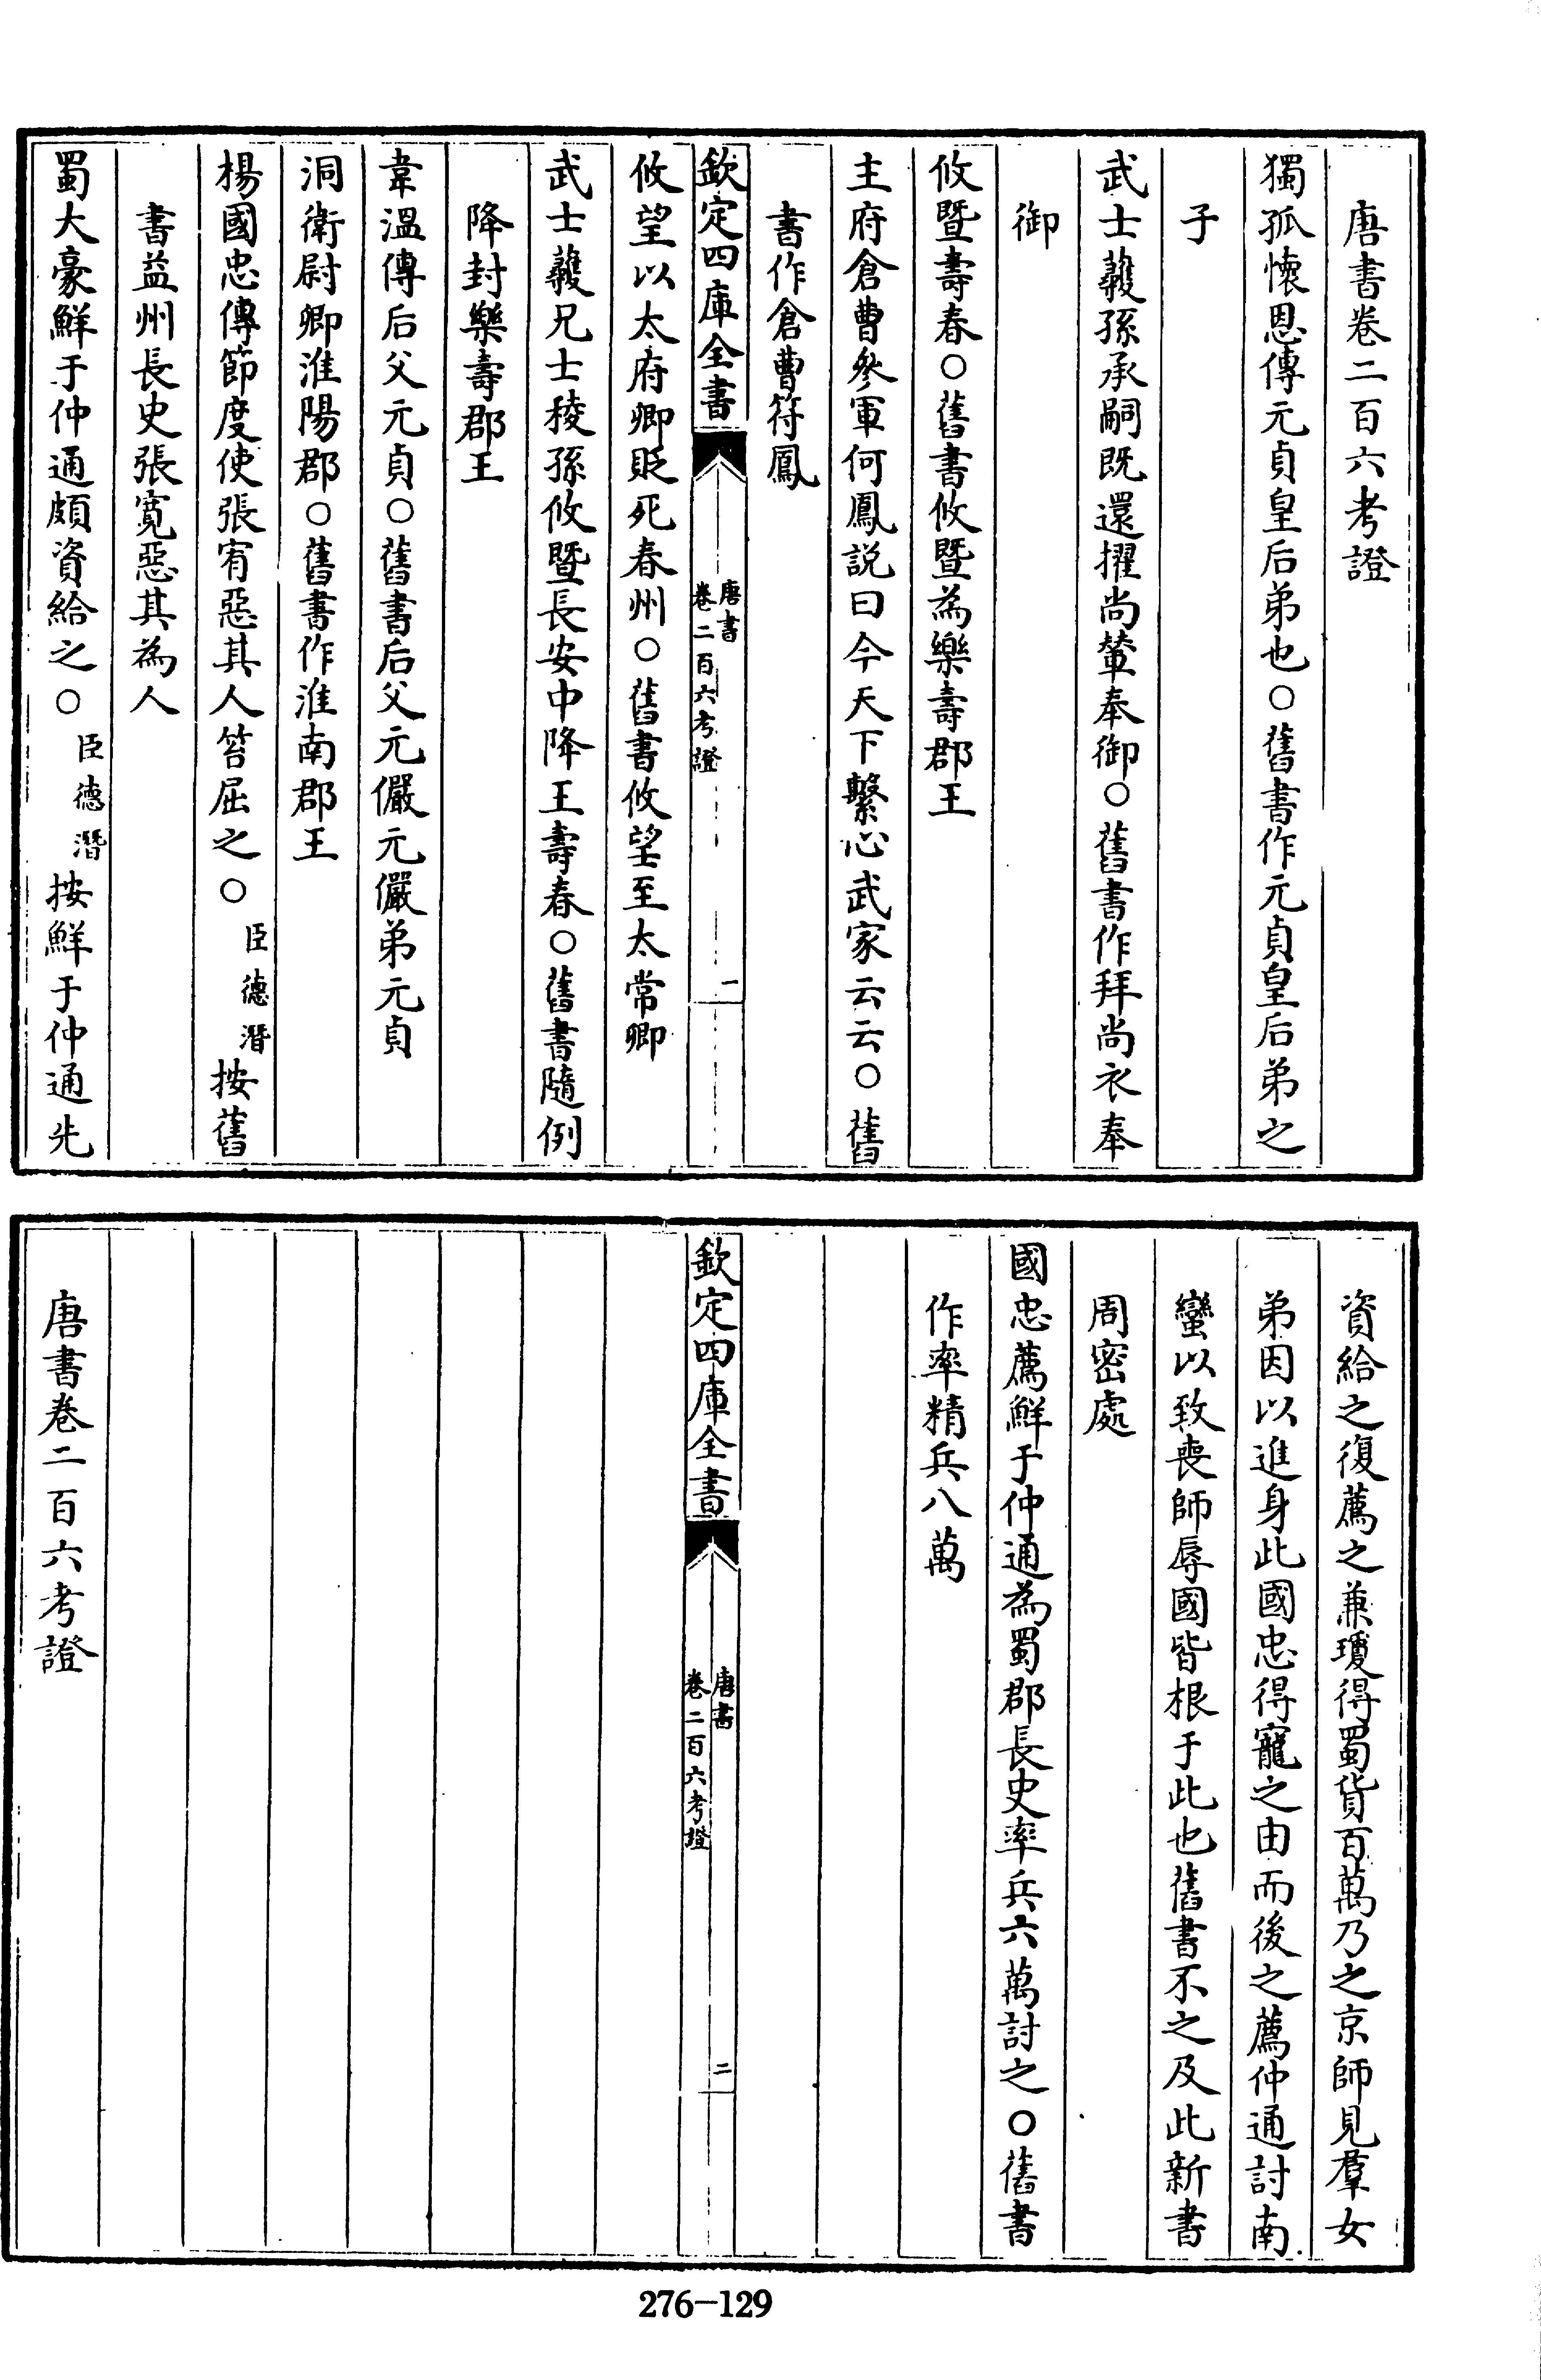 唐書卷二百六考證
獨孤懷恩傳元貞皇后弟也○舊書作元貞皇后弟之
子
武士彠孫承嗣既還擢尚輦奉御○舊書作拜尚衣奉
御
攸暨壽春○舊書攸暨為樂壽郡王
主府倉曹參軍何鳳説曰今天下繫心武家云云○舊
書作倉曹符鳳
欽定四庫全書
唐書
卷二百六考證
一
攸望以太府卿貶死春州○舊書攸望至太常卿
武士彠兄士稜孫攸暨長安中降王壽春○舊書隨例
降封樂壽郡王
韋溫傳后父元貞○舊書后父元儼元儼弟元貞
洞衛尉卿淮陽郡○舊書作淮南郡王
楊國忠傳節度使張宥惡其人笞屈之○臣德潛按舊
書益州長史張寬惡其為人
蜀大豪鮮于仲通頗資給之○臣德潛按鮮于仲通先
資給之復薦之兼瓊得蜀貨百萬乃之京師見羣女
弟因以進身此國忠得寵之由而後之薦仲通討南
蠻以致喪師辱國皆根于此也舊書不之及此新書
周密處
國忠薦鮮于仲通為蜀郡長史率兵六萬討之○舊書
作率精兵八萬
欽定四庫全書
唐書
卷二百六考證
二
唐書卷二百六考證
276-129